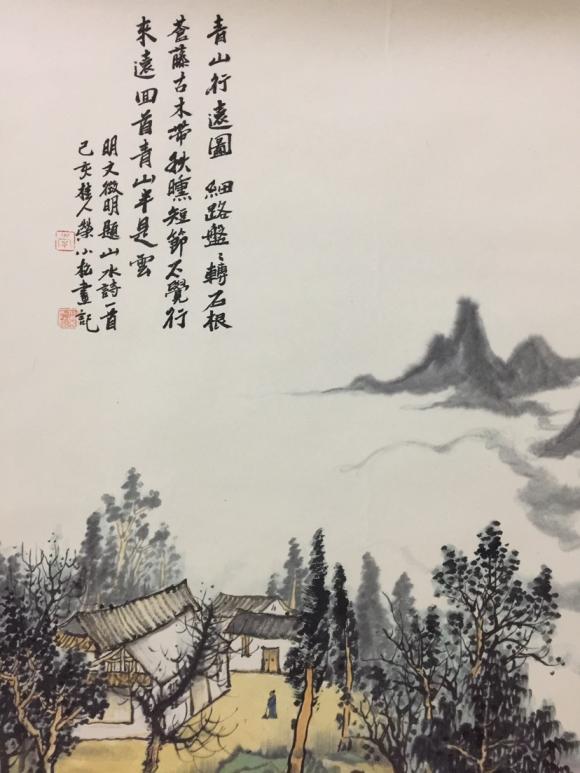 青山行遠圖 細路盤〻轉石根
蒼藤古木帶秋曛短節不覺行
來遠回首青山半是雲
明文徵明題山水詩一首
己亥桂人榮小松畫記